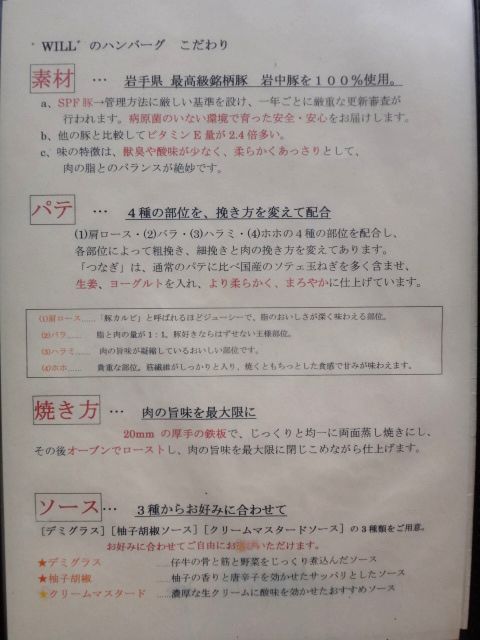 "WILL"のハンバーグ こだわり
素材 … 岩手県 最高級銘柄豚 岩中豚を100%使用。
a、SPF豚→管理方法に厳しい基準を設け、一年ごとに厳重な更新審査が
行われます。病原菌のいない環境で育った安全・安心をお届けします。
b、他の豚と比較してビタミンE量が2.4倍多い。
c、味の特徴は、獣臭や酸味が少なく、柔らかくあっさりとして、
肉の脂とのバランスが絶妙です。
パテ … 4種の部位を、挽き方を変えて配合
(1)肩ロース・(2)バラ・(3)ハラミ・(4)ホホの4種の部位を配合し、
各部位によって粗挽き、細挽きと肉の挽き方を変えてあります。
「つなぎ」は、通常のパテに比べ国産のソテェ玉ねぎを多く含ませ、
生姜、ヨーグルトを入れ、より柔らかく、まろやかに仕上げています。
(1)肩ロース……「豚カルビ」と呼ばれるほどジューシーで、脂のおいしさが深く味わえる部位。
(2)バラ…… 脂と肉の量が1:1。豚好きならはずせない王様部位。
(3)ハラミ…… 肉の旨味が凝縮しているおいしい部位です。
(4)ホホ…… 貴重な部位。筋繊維がしっかりと入り、焼くともちっとした食感で甘みが味わえます。
焼き方 … 肉の旨味を最大限に
20mmの厚手の鉄板で、じっくりと均一に両面蒸し焼きにし、
その後オーブンでローストし、肉の旨味を最大限に閉じこめながら仕上げます。
ソース … 3種からお好みに合わせて
[デミグラス][柚子胡椒ソース][クリームマスタードソース]の3種類をご用意。
お好みに合わせてご自由にお選びいただけます。
★デミグラス ……仔牛の骨と筋と野菜をじっくり煮込んだソース
★柚子胡椒 ……柚子の香りと唐辛子を効かせたサッパリとしたソース
★クリームマスタード ……濃厚な生クリームに酸味を効かせたおすすめソース